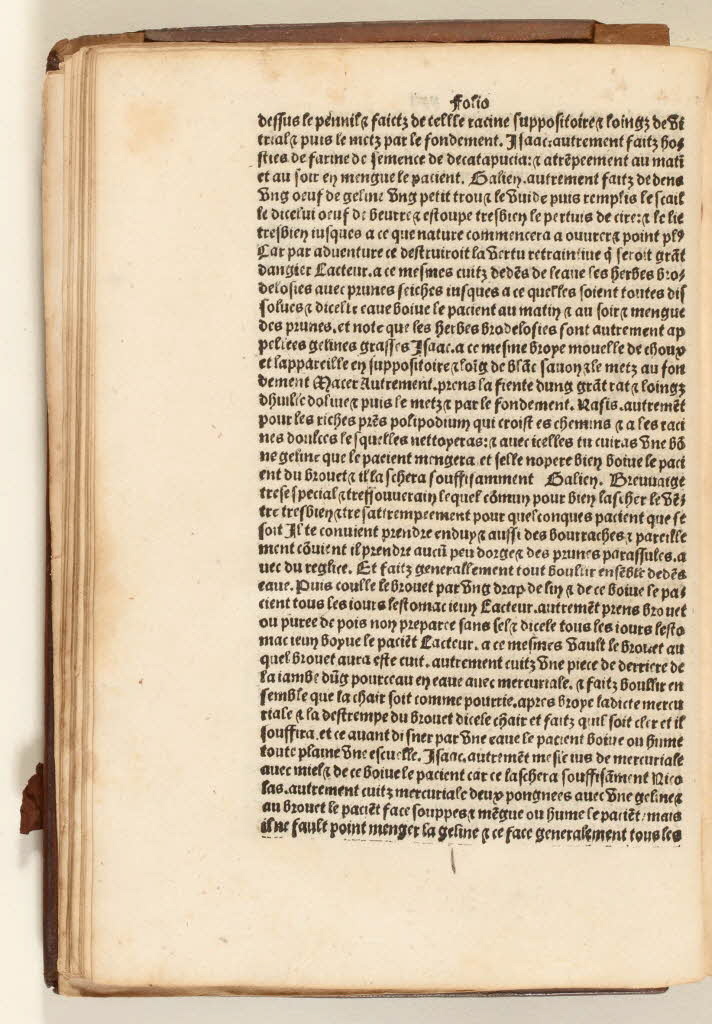 Folio
dessus le pennil⁊ faictz de cellle racine suppositoire⁊ loingz de vi
trial⁊ puis le metz par le fondement. Isaac:autrement faitz hos
sties de farine de semence de decatapucia:⁊ atrẽpeement au mati
et au soir en mengue le pacient. Galien.autrement faitz de dens
vng oeuf de geline vng petit trou⁊ le vuide puis remplis le scail
le dicelui oeuf de beurre⁊ estoupe tresbien le pertuis de cire:⁊ le lie
tresbien iusques a ce que nature commencera a ouurer⁊ point plꝰ
Car par aduenture ce destruiroit la vertu retraintiue q̃ seroit grãt
dangier Lacteur.a ce mesmes cuitz dedẽs de leaue les herbes bro-
delosies auec prunes seiches iusques a ce quelles soient toutes dis
solues⁊ dicelle eaue boiue le pacient au matin⁊ au soir⁊ mengue
des prunes.et note que les herbes brodelosies sont autrement ap
pellees gelines grasses Isaac.a ce mesme broye mouelle de choux
et lappareille en suppositoire⁊ loĩg de blãc sauon⁊ le metz au fon
dement Macer Autrement.prens la fiente dung grãt rat⁊ loingz
dhuille doliue⁊ puis le metz⁊ par le fondement. Rasis.autremẽt
pour les riches prẽs polipodium qui croist es chemins ⁊ a les raci
nes doulces lesquelles nettoyeras:⁊ auec icelles tu cuiras vne bõ
ne geline que le pacient mengera et selle nopere bien boiue le paci
ent du brouet⁊ il laschera souffisamment Galien. Breuuaige
trese special⁊ tressouuerain lequel cõmun pour bien lascher le vẽ
tre tresbien⁊tresattrempeement pour quelconques pacient que se
soit Il te conuient prendre enduy⁊ aussi des bourraches⁊ pareille
ment cõuient il prendre aucũ peu dorge⁊ des prunes parassules.a
uec du reglice. Et faitz generallement tout boullir ensẽble dedẽs
eaue. Puis coulle le brouet par vng drap de lin ⁊ de ce boiue le pa-
cient tous les iours lestomac ieun Lacteur.autremẽt prens brouet
ou puree de pois non preparee sans sel⁊ dicele tous les iours lesto
mac ieun boyue le paciẽt Lacteur. a ce mesmes vault le brouet au
quel brouet aura este cuit. autrement cuitz vne piece de derriere de
la iambe dũg pourceau en eaue auec mercuriale. ⁊ faitz boullir en
semble que la chair soit comme pourrie.apres broye ladicte mercu
riale ⁊ la destrempe du brouet dicele chair et faitz quil soit cler et il
souffira.et ce auant disner par vne eaue le pacient boiue ou hume
toute plaine vne escuelle. Isaac.autremẽt mesle ius de mercuriale
auec miel⁊ de ce boiue le pacient car ce laschera souffisãment Nico
las.autrement cuitz mercuriale deux pongnees auec vne geline⁊
au brouet le paciẽt face souppes⁊ mẽgue ou hume le paciẽt/mais
il ne fault point menger la geline ⁊ ce face generalement tous les